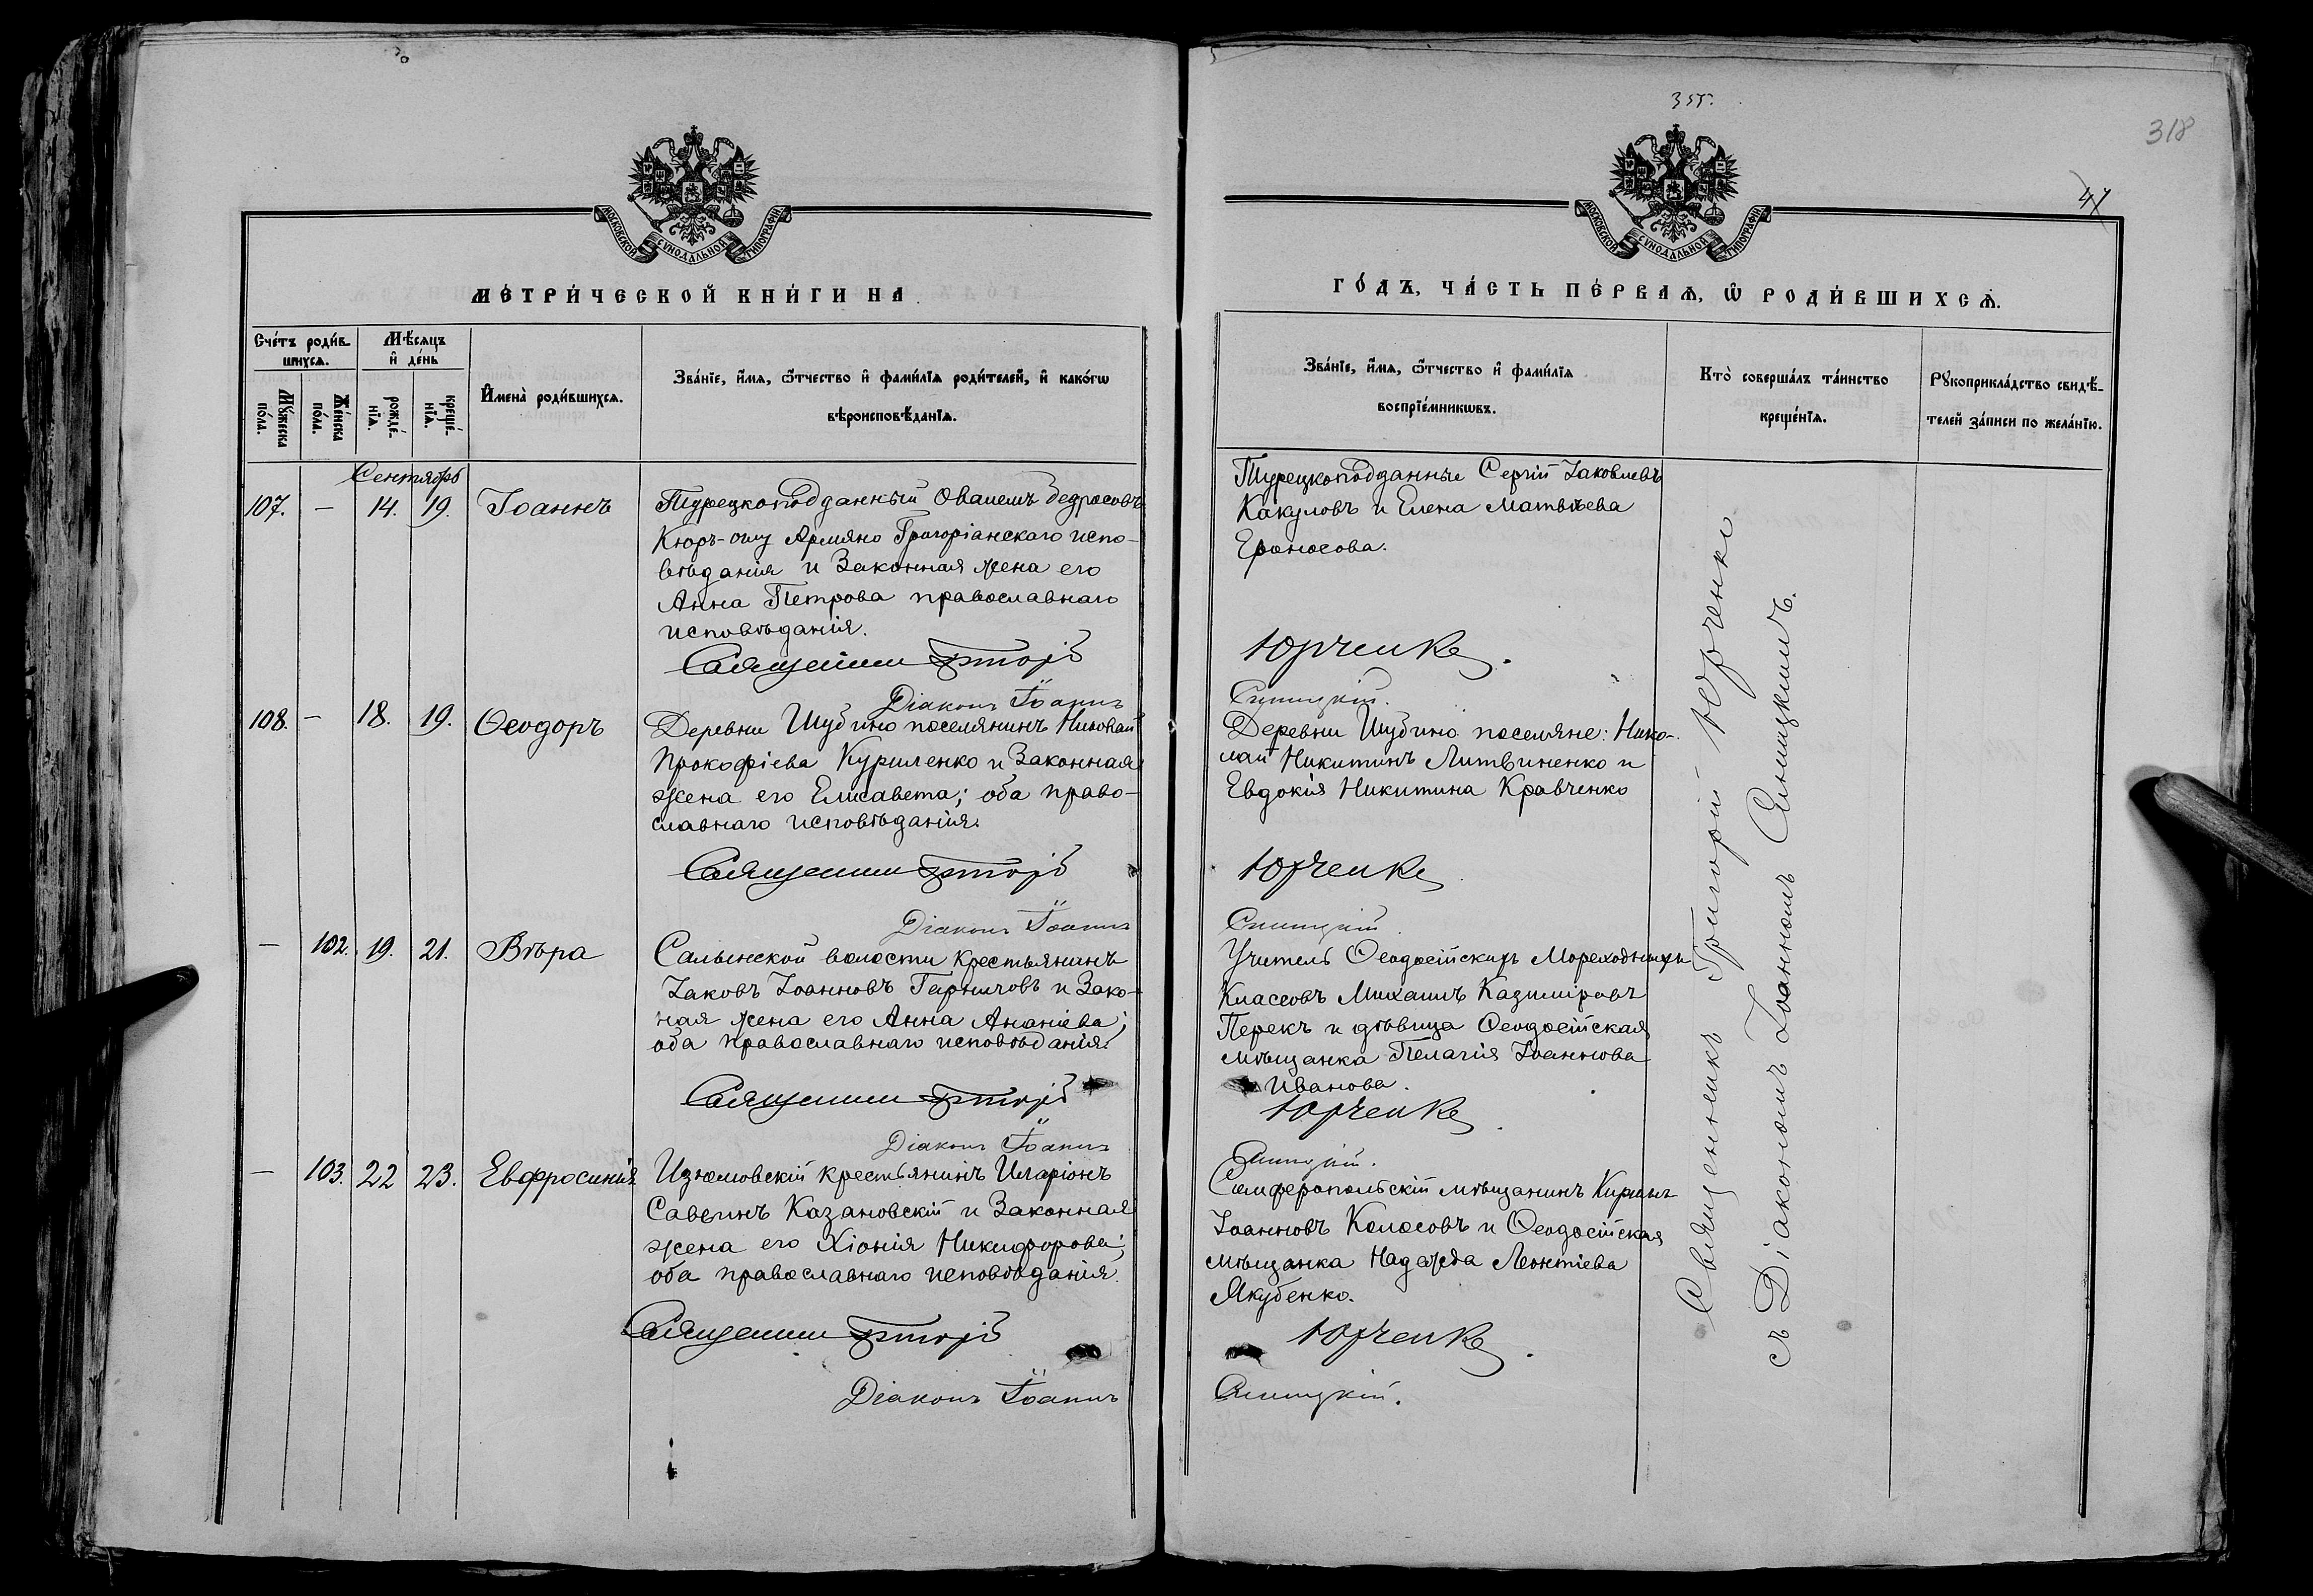 355.
318
41
МОСКОВСКОЙ СѴНОДАЛЬНОЙ ТИПОГРАФІИ
МЕТРИ́ЧЕСКОЙ КНИ́ГИ НА
Сче́тъ роди́в-
шихсѧ.
Мѣ́сѧцъ
и҆ де́нь
Мꙋ́жеска
по́ла.
Же́нска
по́ла.
рожде́-
нїѧ.
креще́-
нїѧ.
И҆мена̀ роди́вшихсѧ.
Зва́нїе, и҆́мѧ, ѻ҆́тчество и҆ фами́лїѧ роди́телей, и҆ како́гѡ
вѣроисповѣ́данїѧ.
Сентябрь
107. — 14. 19. Іоаннъ
Турецкоподданный Ованесъ Бедросовъ
Кюръ-оглу Армяно Григоріанскаго испо-
вѣданія и Законная жена его
Анна Петрова православнаго
исповѣданія.
Діаконъ Іоаннъ
108. — 18. 19. Ѳеодоръ
Деревни Шубино поселянинъ Николай
Прокофіева Куриленко и Законная
жена его Елисавета; оба право-
славнаго исповѣданія.
Діаконъ Іоаннъ
— 102. 19. 21. Вѣра
Салынской волости крестьянинъ
Іаковъ Іоанновъ и Зако-
ная жена его Анна Ананіева;
оба православнаго исповѣданія.
Діаконъ Іоаннъ
— 103. 22 23. Евфросинія
Изюмовскій крестьянинъ Иларіонъ
Саввинъ Казановскій и Законная
жена его Хіонія Никифорова;
оба православнаго исповѣданія.
Діаконъ Іоаннъ
МОСКОВСКОЙ СѴНОДАЛЬНОЙ ТИПОГРАФІИ
ГО́ДЪ, ЧА́СТЬ ПЕ́РВАѦ, Ѡ҆ РОДИ́ВШИХСѦ.
Зва́нїе, и҆́мѧ, ѻ҆́тчество и҆ фами́лїѧ
воспрїе́мникѡвъ.
Кто̀ соверша́лъ та́инство
креще́нїѧ.
Рꙋкоприкла́дство свидѣ́-
телей за́писи по жела́нїю.
Турецкоподданные Сергій Іаковлевъ
Какуловъ и Елена Матвѣева
Юрченко.
Синицкій.
Деревни Шубино поселяне: Нико-
лай Никитинъ Литвиненко и
Евдокія Никитина Кравченко
Юрченко
Синицкій
Учитель Ѳеодосійскихъ Мореходныхъ
Классовъ Михаилъ Казиміровъ
Перекъ и дѣвица Ѳеодосійская
мѣщанка Пелагія Іоаннова
Иванова.
Юрченко
Синицкій.
Симферопольскій мѣщанинъ Кириллъ
Іоанновъ Колосовъ и Ѳеодосійская
мѣщанка Надежда Леонтіева
Якубенко.
Юрченко
Синицкій.
Священникъ Григорій Юрченко
съ Діакономъ Іоанномъ Синицкимъ.